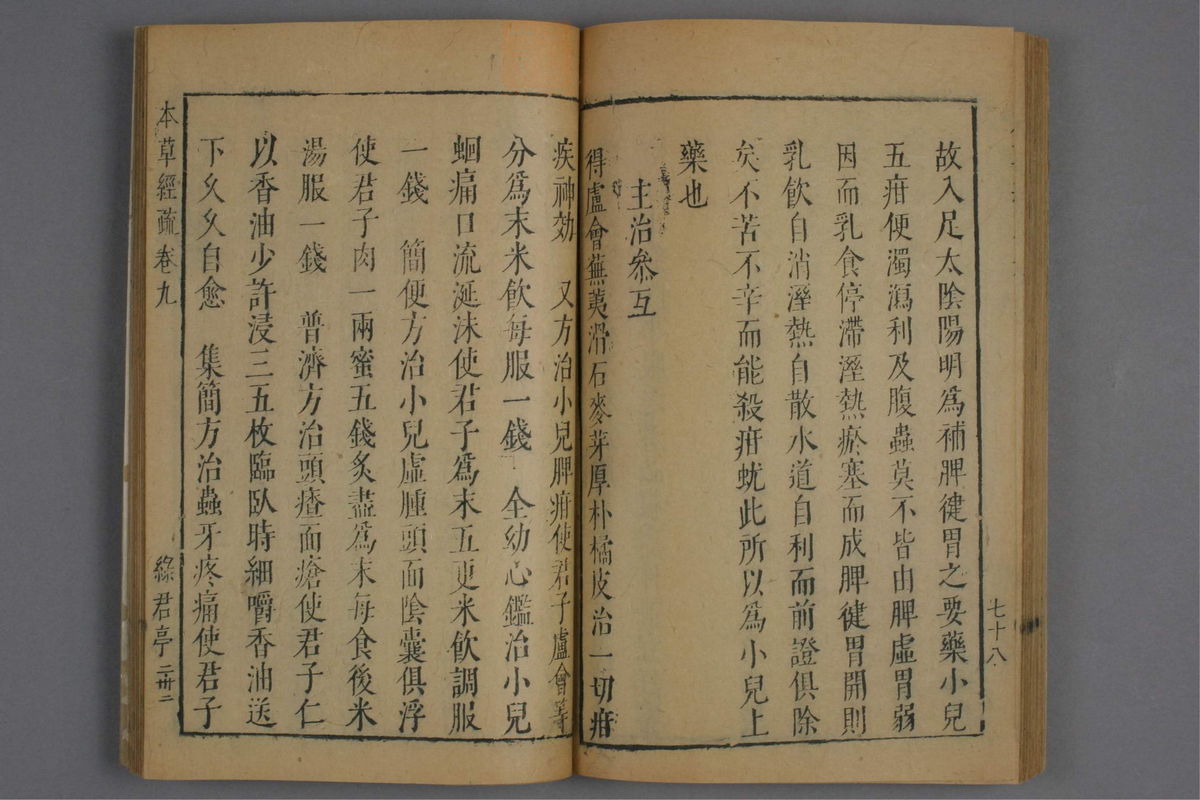 故入足太陰陽明爲補脾健胃之要藥小兒
五疳便濁瀉利及腹蟲莫不皆由脾虛胃弱
因而乳食停滯溼熱瘀塞而成脾健胃開則
乳飲自消溼熱自散水道自利而前證俱除
矣不苦不辛而能殺疳蚘此所以爲小兒上
藥也
主治參互
得盧會蕪荑滑石麥芽厚朴橘皮治一切疳
七十八
疾神効　又方治小兒脾疳使君子盧會等
分爲末米飲每服一錢　全幼心鑑治小兒
蛔痛口流涎沫使君子爲末五更米飲調服
一錢　簡便方治小兒虛腫頭面陰囊俱浮
使君子肉一兩蜜五錢炙盡爲末每食後米
湯服一錢　普濟方治頭瘡面瘡使君子仁
以香油少許浸三五枚臨臥時細嚼香油送
下久久自愈　集簡方治蟲牙疼痛使君子
本草經疏卷九
綠君亭